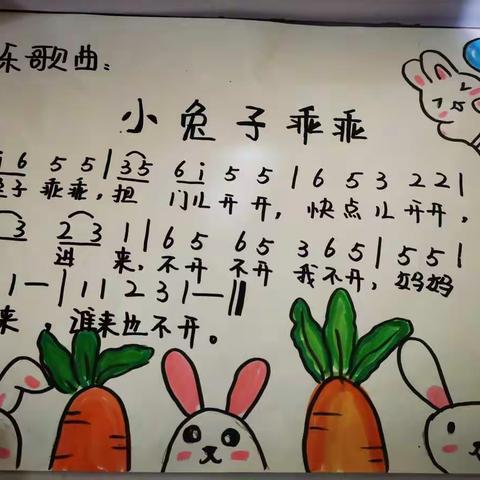 乐歌曲:
小兔子乖乖
i 6 5 5 | 3 5 6 i 5 5 | 6 5 3 2 2 |
兔子乖乖,把门儿开开,快点儿开开,
3 2 3 1 | 6 5 6 5 3 6 5 | 5 5 |
进来,不开不开我不开,妈妈
1 — | 1 1 2 3 1 — ‖
来,谁来也不开。